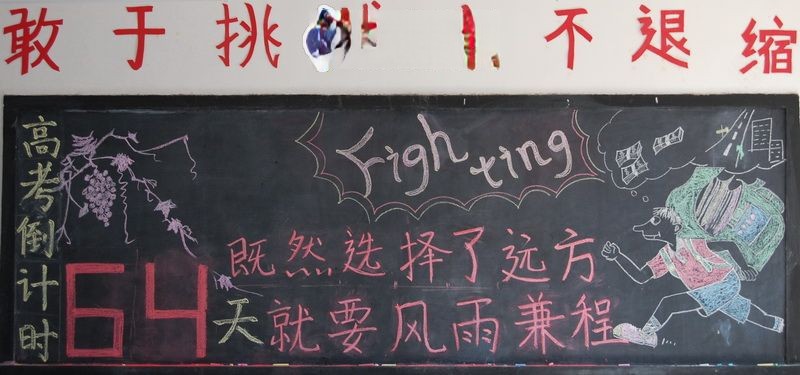 敢于挑 不退缩
高考倒计时
64天
Fighting
既然选择了远方
就要风雨兼程